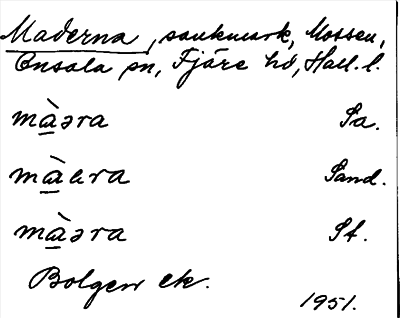 Maderna, sankmark, Mossen,
Onsala sn, Fjäre hd, Hall. l.
màəra Sa.
màəra Sand.
màəra St.
Bolgen ek.
1951.